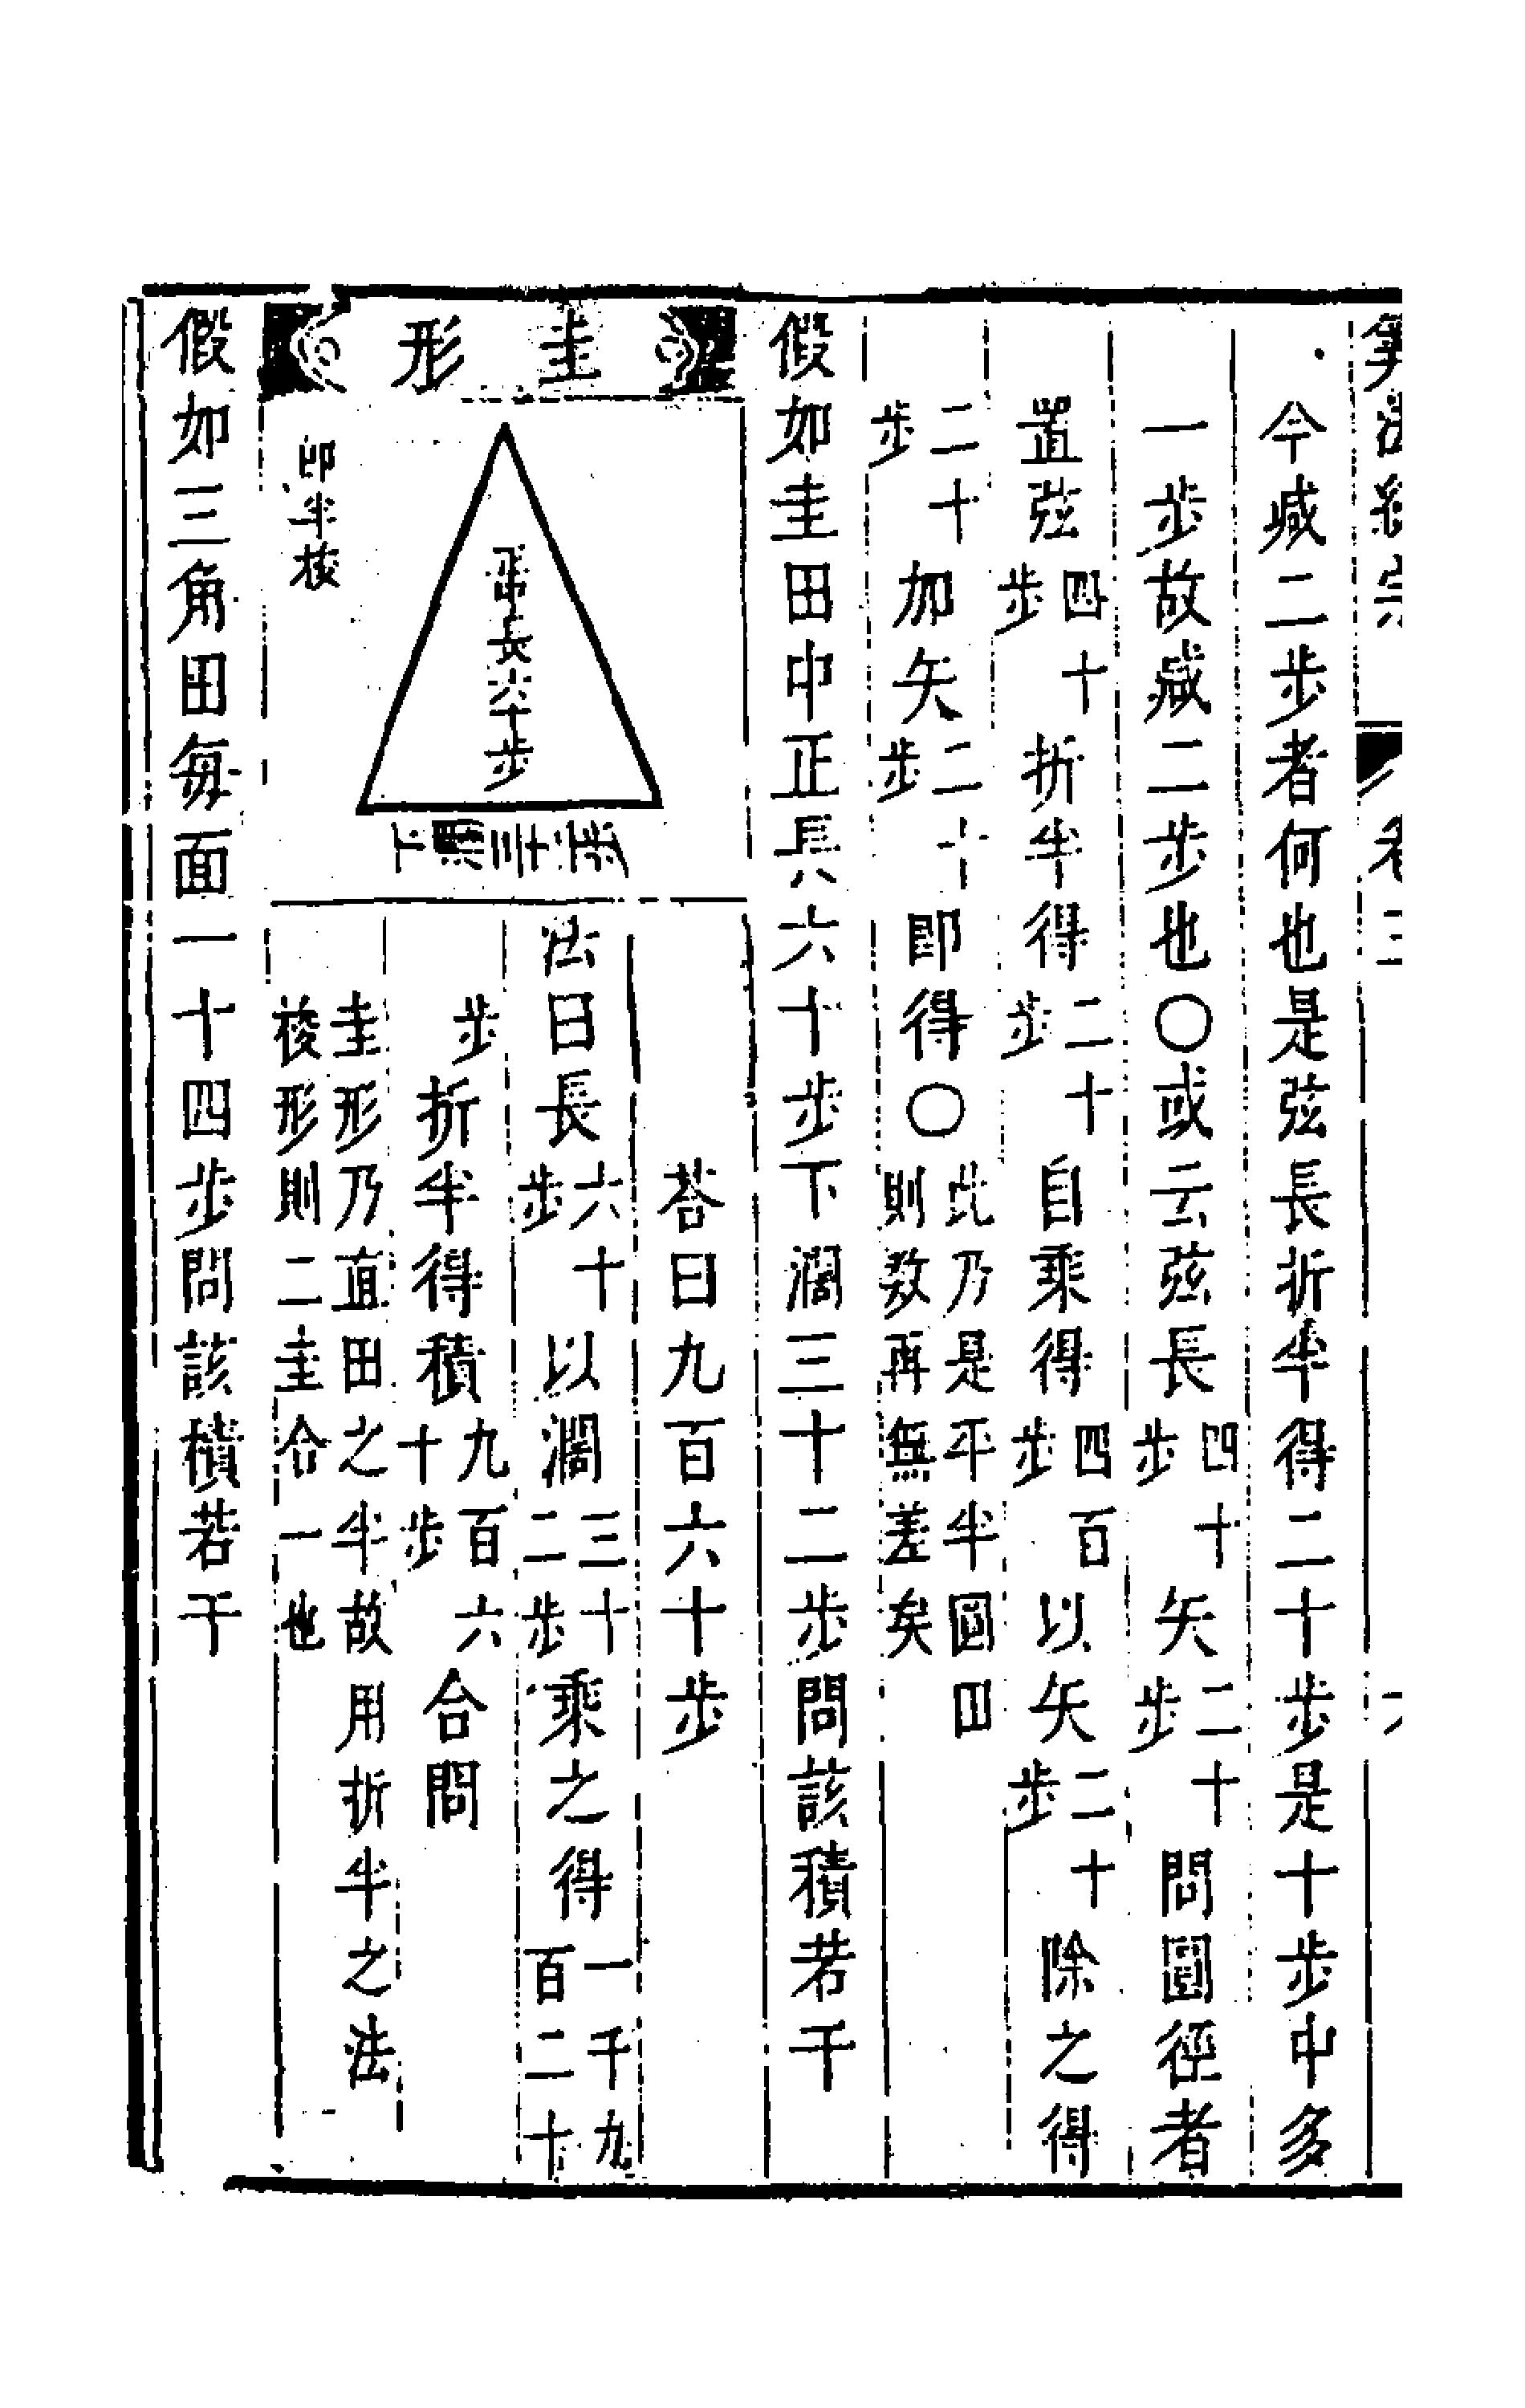 算法統宗 卷三 六
今減二步者何也是弦長折半得二十步是十步中多
一步故減二步也〇或云弦長四十步矢二十步問圓徑者
置弦四十步折半得二十步自乘得四百步以矢二十步除之得
二十步加矢二十步即得〇此乃是平半圓田則數再無差矣
假如圭田中正長六十步下濶三十二步問該積若干
荅曰九百六十步
圭形
中長六十步
下濶三十二步
即半梭
法曰長六十步以濶三十二步乘之得一千九百二十
步折半得積九百六十步合問
圭形乃直田之半故用折半之法
梭形則二圭合一也
假如三角田每面一十四步問該積若干